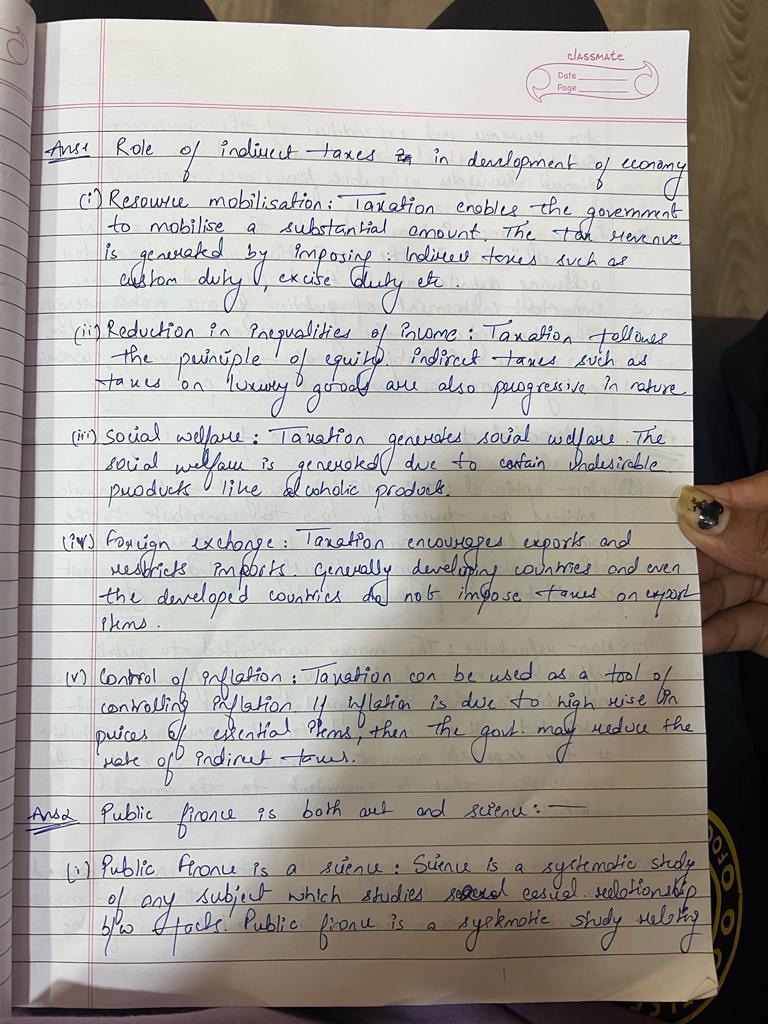 classmate
Date
Page
Ans1 Role of indirect taxes in development of economy
(i) Resource mobilisation : Taxation enables the government
to mobilise a substantial amount. The tax revenue
is generated by imposing : Indirect taxes such as
custom duty, excise duty etc.
(ii) Reduction in inequalities of income : Taxation follows
the principle of equity. indirect taxes such as
taxes on luxury goods are also progressive in nature.
(iii) Social welfare : Taxation generates social welfare. The
social welfare is generated due to certain undesirable
products like alcoholic products.
(iv) Foreign exchange : Taxation encourages exports and
restricts imports. Generally developing countries and even
the developed countries do not impose taxes on export
items.
(v) Control of inflation : Taxation can be used as a tool of
controlling inflation. If inflation is due to high rise in
prices of essential items, then the govt. may reduce the
rate of indirect taxes.
Ans2 Public finance is both art and science :—
(i) Public finance is a science : Science is a systematic study
of any subject which studies casual relationship
b/w facts. Public finance is a systematic study relating